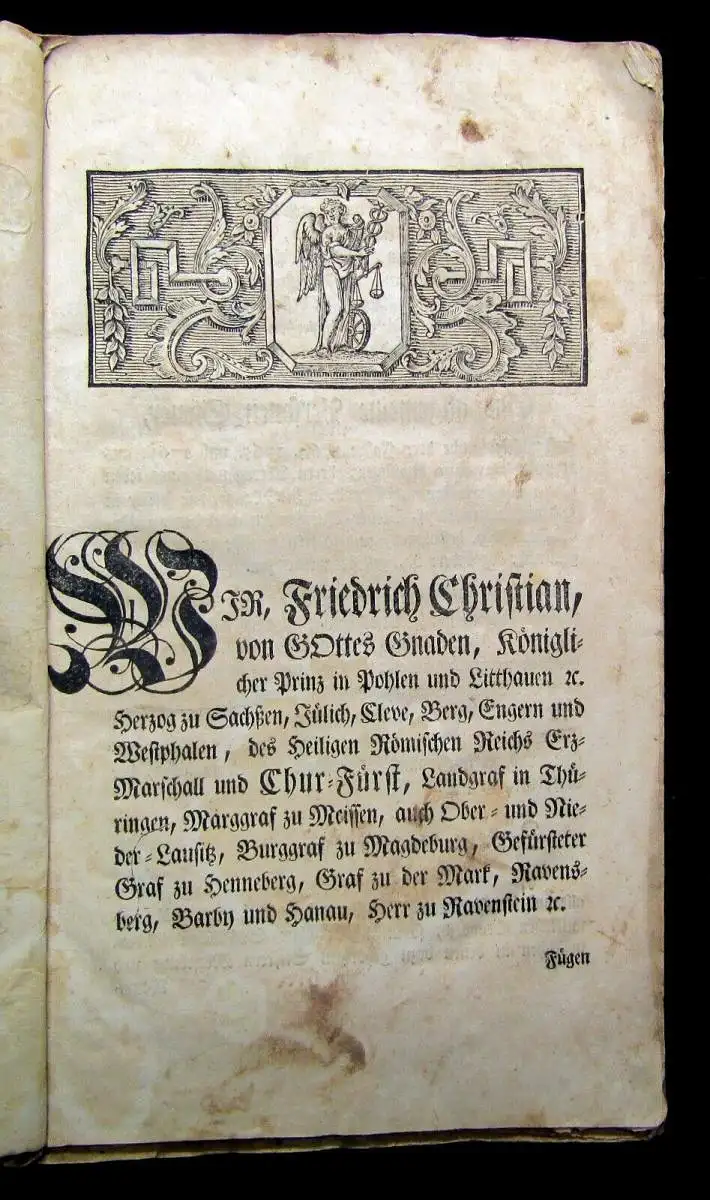 WIR, Friedrich Christian,
von GOttes Gnaden, Königli-
cher Prinz in Pohlen und Litthauen ꝛc.
Herzog zu Sachßen, Jülich, Cleve, Berg, Engern und
Westphalen, des Heiligen Römischen Reichs Erz-
Marschall und Chur-Fürst, Landgraf in Thü-
ringen, Marggraf zu Meissen, auch Ober- und Nie-
der-Lausitz, Burggraf zu Magdeburg, Gefürsteter
Graf zu Henneberg, Graf zu der Mark, Ravens-
berg, Barby und Hanau, Herr zu Ravenstein ꝛc.
Fügen